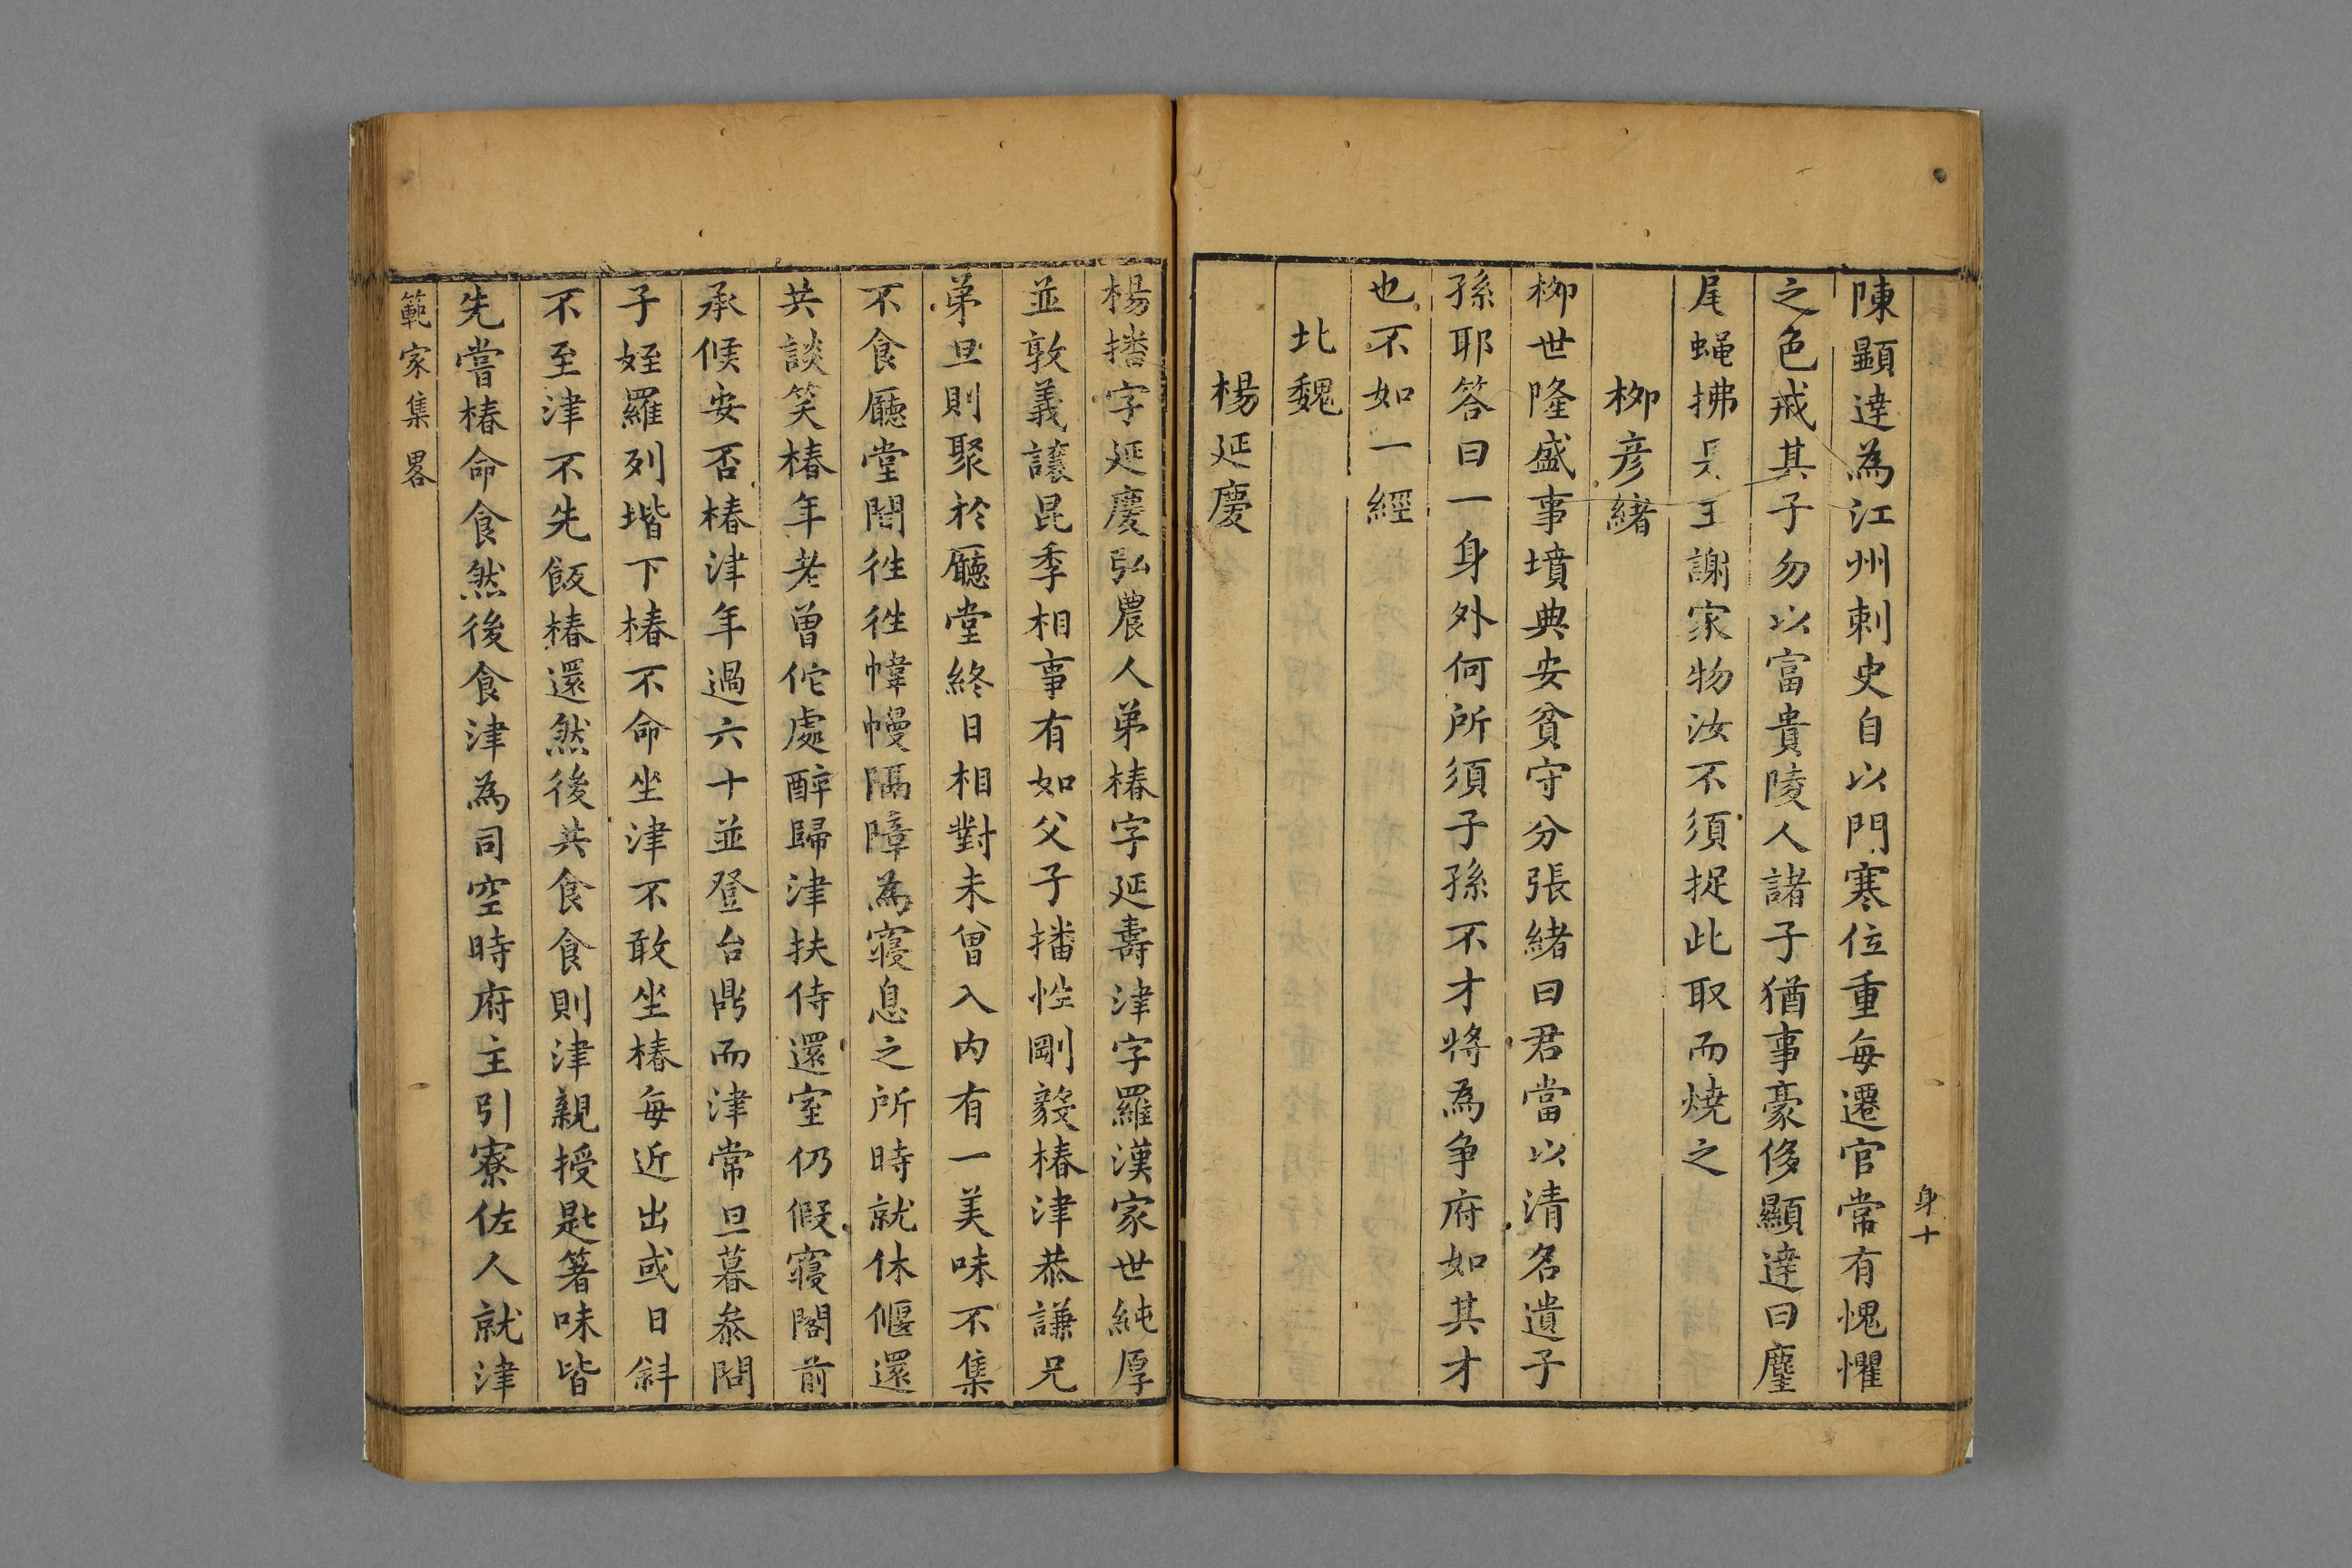 身十
陳顯達為江州刺史自以門寒位重每遷官常有愧懼
之色戒其子勿以富貴陵人諸子猶事豪侈顯達曰麈
尾蝇拂是王謝家物汝不須捉此取而燒之
柳彦緒
柳世隆盛事墳典安貧守分張緒曰君當以清名遺子
孫耶答曰一身外何所須子孫不才將為争府如其才
也不如一經
北魏
楊延慶
楊播字延慶弘農人弟椿字延壽津字羅漢家世純厚
並敦義讓昆季相事有如父子播性剛毅椿津恭謙兄
弟旦則聚於廳堂終日相對未曾入内有一美味不集
不食廳堂間徃徃幃幔隔障為寢息之所時就休偃還
共談笑椿年老曾佗處醉歸津扶侍還室仍假寢閤前
承候安否椿津年過六十並登台鼎而津常旦暮叅問
子姪羅列堦下椿不命坐津不敢坐椿每近出或日斜
不至津不先飯椿還然後共食食則津親授匙箸味皆
先嘗椿命食然後食津為司空時府主引寮佐人就津
範家集畧